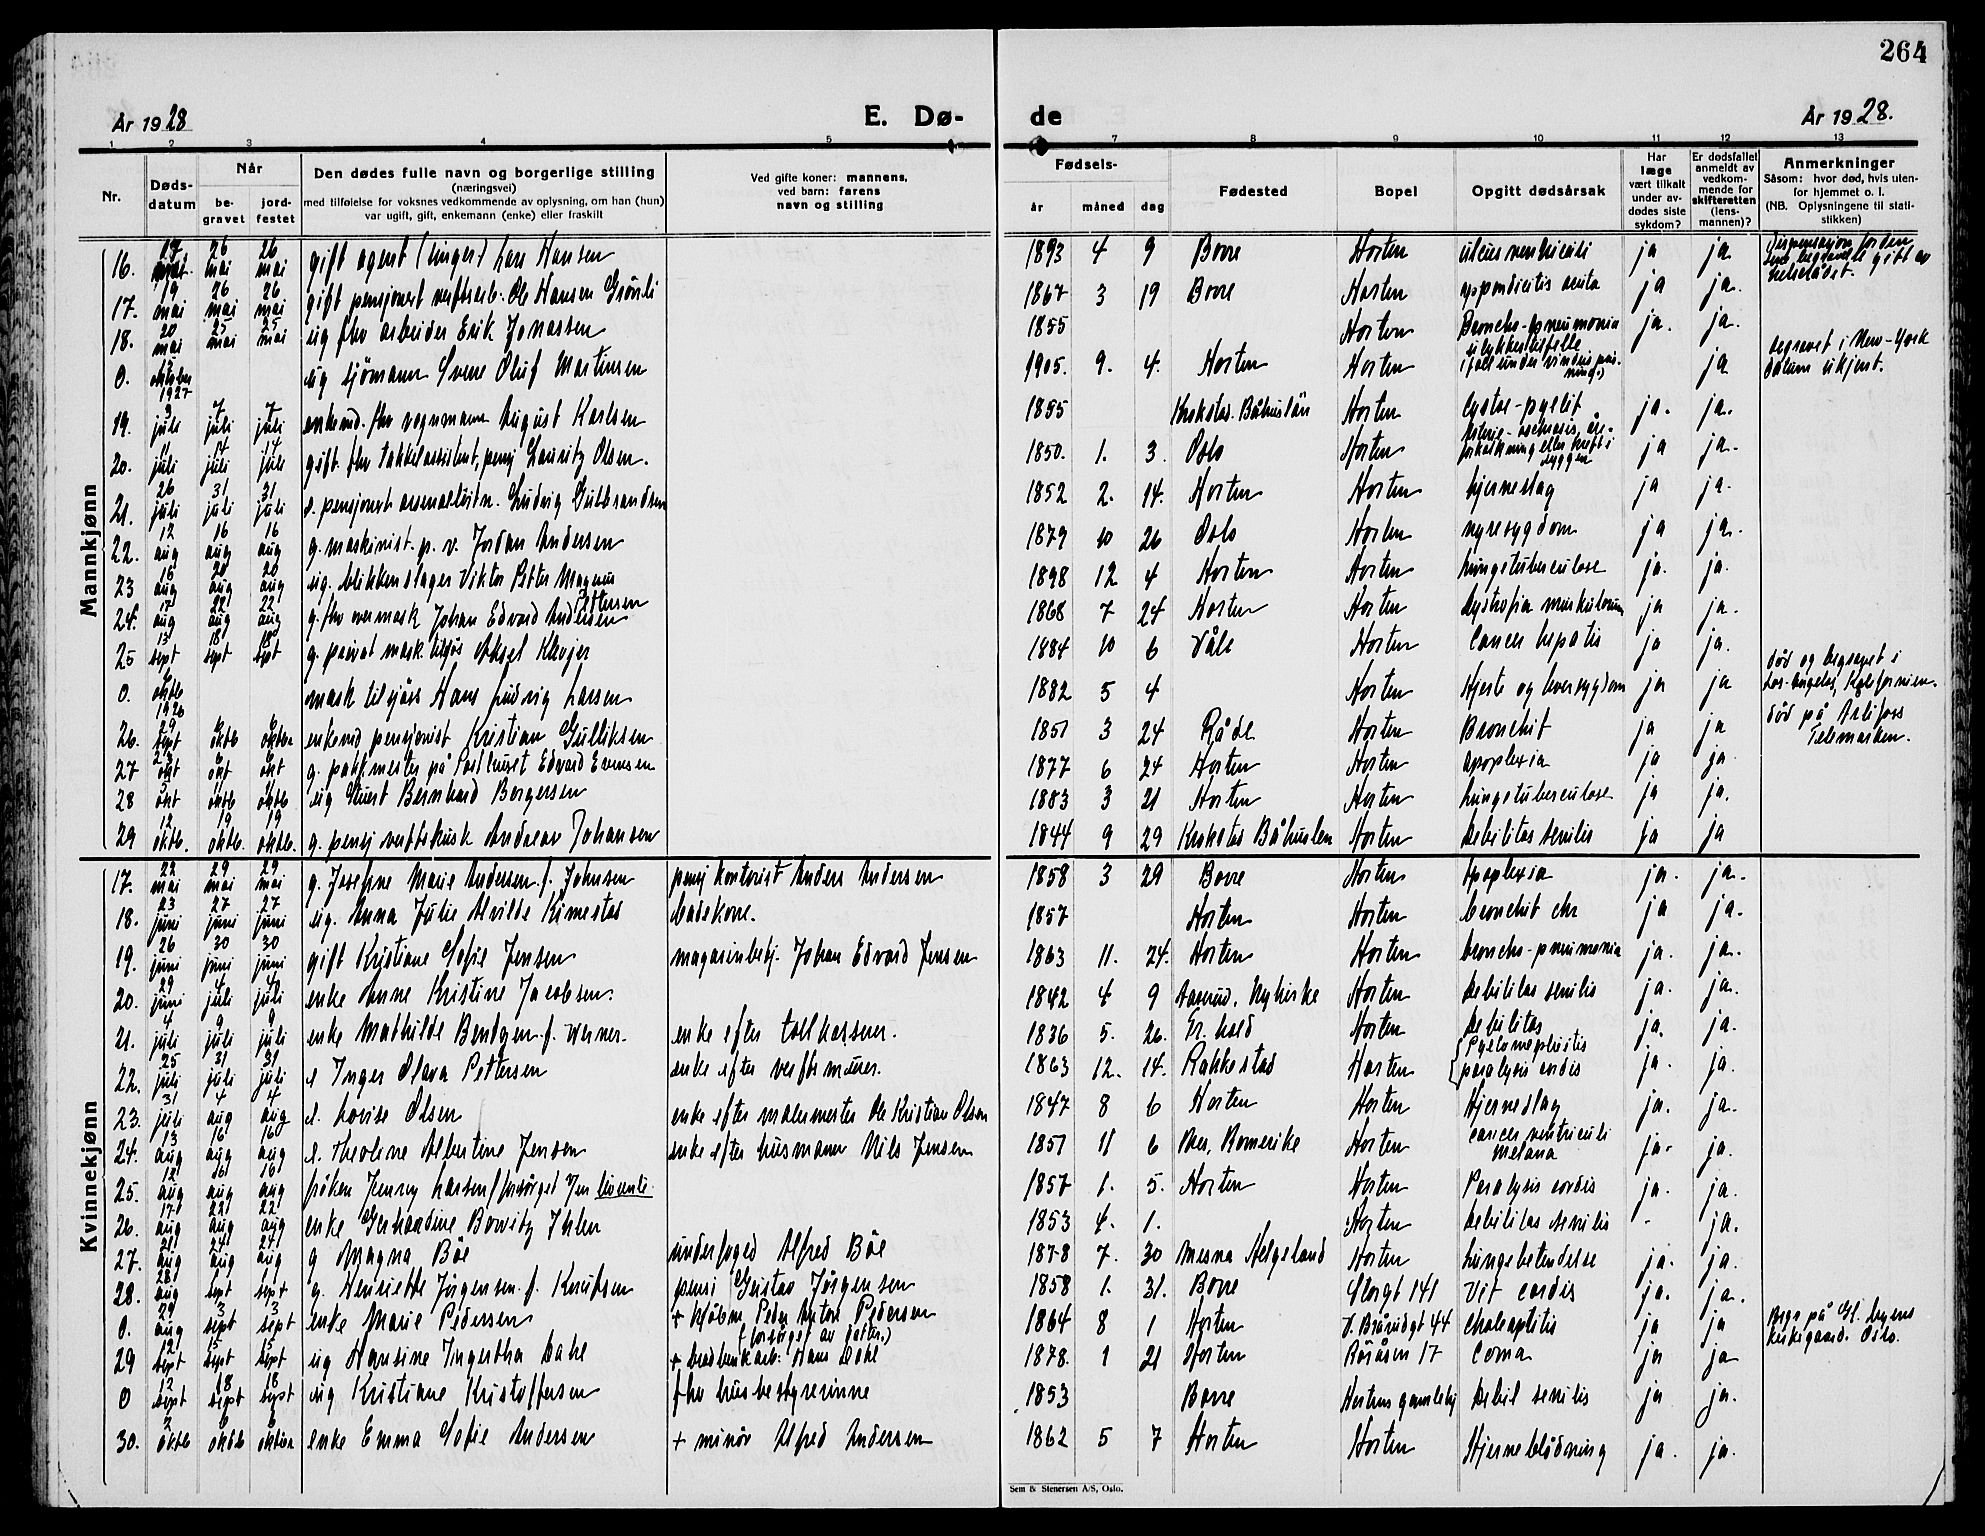 264
År 1928
E. Dø-
de
År 1928.
1 2 3 4 5 7 8 9 10 11 12 13
Nr.
Døds-
datum
Når
be-
gravet
jord-
festet
Den dødes fulle navn og borgerlige stilling
(næringsvei)
med tilføielse for voksnes vedkommende av oplysning, om han (hun)
var ugift, gift, enkemann (enke) eller fraskilt
Ved gifte koner: mannens,
ved barn: farens
navn og stilling
Fødsels-
år måned dag
Fødested
Bopel
Opgitt dødsårsak
Har
læge
vært tilkalt
under av-
dødes siste
sykdom?
Er dødsfallet
anmeldt av
vedkom-
mende for
skifteretten
(lens-
mannen)?
Anmerkninger
Såsom: hvor død, hvis uten-
for hjemmet o. l.
(NB. Oplysningene til stati-
stikken)
Mannkjønn
16. 17 26 mai 26 mai gift agent Lars Hansen 1893 4 9 Borre Horten ulcus ventriculi ja ja
17. 19 mai 26 mai 26 mai gift pensjonert verftsarb: Ole Hansen Grønli 1867 3 19 Borre Horten appendicitis acuta ja ja.
18. 20 mai 25 mai 25 mai ug fhv arbeider Erik Jonassen 1855 Horten Broncho-pneumonia ja. ja.
0. oktober 1927 ug sjømann Sverre Oluf Martinsen 1905. 9. 4. Horten Horten ulykkestilfelle i fall under vinduspus- ning.) ja begravet i New-York datum ukjent.
19. 3 juli 7 juli 7 juli enkemd. fhv vognmann August Karlsen 1855 Krokstad. Båhuslän Horten Cysto-pyelit ja. ja.
20. 11 juli 14 juli 14 juli gift. fhv takkelassistent, pensj Lauritz Olsen. 1850. 1. 3. Oslo Horten forkalkning eller kreft i ryggen ja ja.
21. 26 juli 31 juli 31 juli e. pensjonert Ludvig Gulbrandsen 1852 2. 14. Horten Horten hjerneslag ja ja.
22. 12 aug 16 aug 16 aug g. maskinist. p. v. Jordan Andersen 1879 10 26 Oslo Horten nyresygdom ja ja.
23 15 aug 20 aug 20 aug ug. blikkenslager Viktor Petter Magnus Pettersen 1898 12 4 Horten Horten lungetuberculose ja. ja.
24. 17 aug 22 aug 22 aug g. fhv overmask Johan Edvard Andersen 1868 7 24 Horten Horten dystrofia muskulorum ja ja.
25 13 sept 18 sept 18 sept g. privat mask. tilsjøs Aksel Kavjer 1884 10 6 Våle Horten Cancer hepatis ja ja.
0. oktb 1926 mask tilsjøs Hans Ludvig Larsen 1882 5 4 Horten Hjerte og leversygdom ja ja død og begravet i Los-Angelos, Kalifornien.
26. 29 sept 6 oktb 6 oktbr enkemd pensjonist Kristian Gulliksen 1851 3 24 Råde Horten Bronchit ja ja død på Telemarken.
27 okt 6 okt 6 okt g. pakkmester på Posthuset Edvard Evensen 1877 6 24 Horten Horten apoplexia ja ja
28 okt oktb oktb ug Bernhard Borgersen 1883 3 21 Horten Horten lungetuberculose ja ja.
29 12 oktb. 19 oktb. 19 oktb. g. pensj verftskusk Andreas Johansen 1844 9 29 Krokstad Båhuslen Horten debilitas senilis ja ja
Kvinnekjønn
17. 22 mai 29 mai 29 mai g. Josefine Marie Andersen f. Johnsen pensj kontorist Anders Andersen 1858 3 29 Borre Horten apoplexia ja. ja.
18. 23 juni 27 juni 27 juni ug. Anna Julie Alvilde Kimestad badekone. 1857 Horten Horten bronchit chr ja ja.
19. 26 juni 30 juni 30 juni gift Kristiane Sofie Jensen magasinbetj. Johan Edvard Jensen 1863 11. 24. Horten Horten broncho-pneumonia ja. ja.
20. 29 juni 4 juli 4 juli enke Anne Kristine Jacobsen. 1842 4 9 Aaserud, Nykirke Horten debilitas senilis ja. ja.
21. 4 juli 9 juli 9 juli enke Mathilde Bentzen f. Werner. enke efter tollkasserer. 1836 5. 26. Fr. hald Horten debilitas ja. ja.
22. 25 juli 31 juli 31 juli e Inger Olava Pettersen enke efter verftsmurer. 1863 12. 14. Rakkestad Horten Pyelonephritis paralysis cordis ja. ja.
23. 31 juli 4 aug 4 aug e. Lovise Olsen enke efter malermester Ole Kristian Olsen 1847 8 6 Horten Horten Hjerneslag ja. ja.
24. 13 aug 16 aug 16 aug e. Theoline Albertine Jensen enke efter husmann Nils Jensen 1851 11 6 Romerike Horten Cancer ventriculi Melæna ja. ja.
25. 12 aug 16 aug 16 aug frøken Jenny Larsen 1857 1. 5. Horten Horten Paralysis cordis ja. ja.
26. 17 aug 22 aug 22 aug enke Gerhardine Borwitz Ihlen 1853 4. 1. Horten debilitas senilis - ja.
27. 21 aug 24 aug 24 aug g Magna Bøe underfoged Alfred Bøe 1878 7. 30 Mosna Helgeland Horten lungebetendelse ja. ja.
28. 28 aug sept sept g. Henriette Jørgensen f. Knutsen pensj Gustav Jørgensen 1858 1. 31. Borre Storgt 141 Vit cordis ja. ja.
0. 29 aug 3 sept 3 sept enke Marie Pedersen + Kjøbm Peder Anton Pedersen (forsørget av datter.) 1864 8 1 Horten V. Bråradgt 44 ja ja Begr på Gl. byens kirkegaard. Oslo.
29 12 sept 15 sept 15 sept ug Hansine Ingertha Dahl Hans Dahl 1878. 1 21 Horten Røråsen 17 Coma ja ja
0 12 sept 18 sept 18 sept ug Kristiane Kristoffersen fhv husbestyrerinne 1853 Borre Hortens gamlehj debil senilis ja ja.
30. 2 oktb 6 oktb 6 oktbr enke Emma Sofie Andersen + minør Alfred Andersen 1862 5 7 Horten Horten Hjerneblødning ja. ja.
Sem & Stenersen A/S, Oslo.